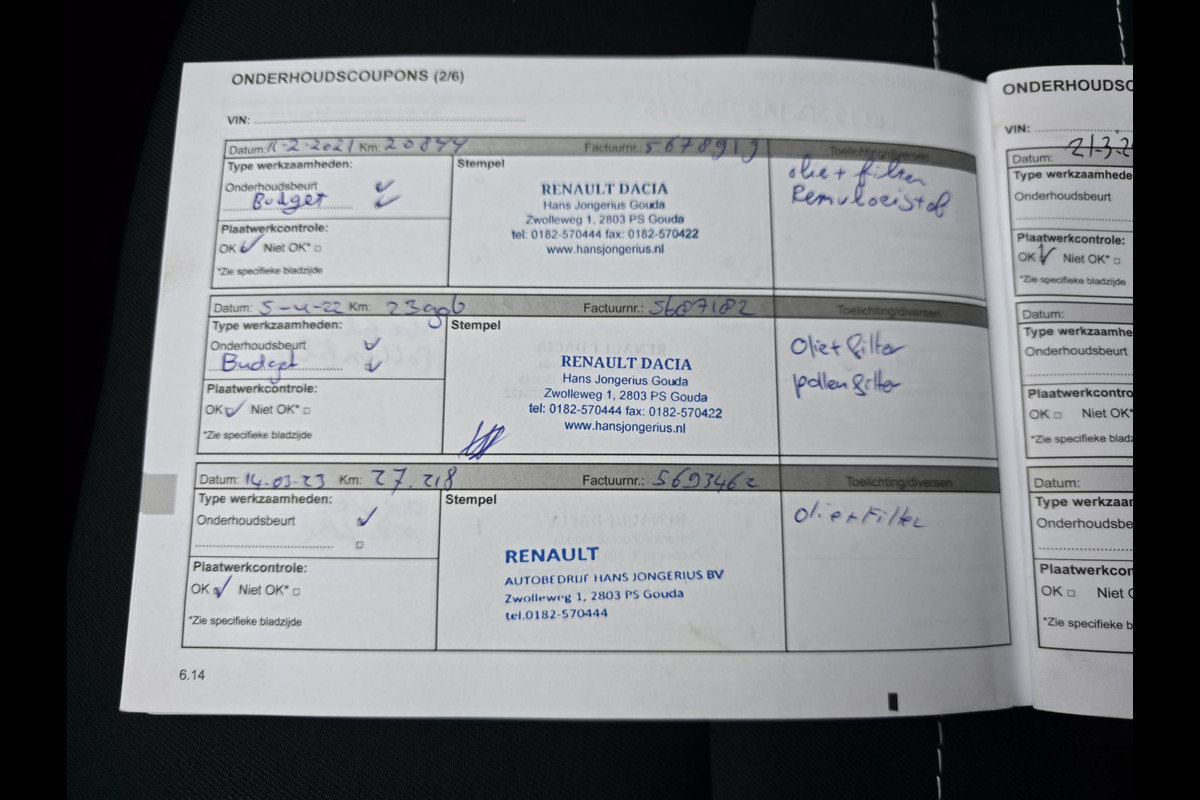 ONDERHOUDSCOUPONS (2/6)
VIN:
Datum: 11-2-2021 Km: 20844 Factuurnr.: 5678919 Toelichting/diversen
Type werkzaamheden:
Onderhoudsbeurt
Budget
Plaatwerkcontrole:
OK Niet OK*
*Zie specifieke bladzijde
Stempel
RENAULT DACIA
Hans Jongerius Gouda
Zwolleweg 1, 2803 PS Gouda
tel: 0182-570444 fax: 0182-570422
www.hansjongerius.nl
olie + filter
Remvloeistof
Datum: 5-4-22 Km: Factuurnr.: 5687182 Toelichting/diversen
Type werkzaamheden:
Onderhoudsbeurt
Budget
Plaatwerkcontrole:
OK Niet OK*
*Zie specifieke bladzijde
Stempel
RENAULT DACIA
Hans Jongerius Gouda
Zwolleweg 1, 2803 PS Gouda
tel: 0182-570444 fax: 0182-570422
www.hansjongerius.nl
Olie + filter
pollenfilter
Datum: 14-03-23 Km: 27.218 Factuurnr.: 5693462 Toelichting/diversen
Type werkzaamheden:
Onderhoudsbeurt
Plaatwerkcontrole:
OK Niet OK*
*Zie specifieke bladzijde
Stempel
RENAULT
AUTOBEDRIJF HANS JONGERIUS BV
Zwolleweg 1, 2803 PS Gouda
tel.0182-570444
Olie + Filter
6.14
ONDERHOUDSC
VIN:
Datum: 21-3-2
Type werkzaamhede
Onderhoudsbeurt
Plaatwerkcontrole:
OK Niet OK*
*Zie specifieke bladzijde
Datum:
Type werkzaamhede
Onderhoudsbeurt
Plaatwerkcontrole
OK Niet OK*
*Zie specifieke bladz
Datum:
Type werkzaam
Onderhoudsbe
Plaatwerkcon
OK Niet O
*Zie specifieke b